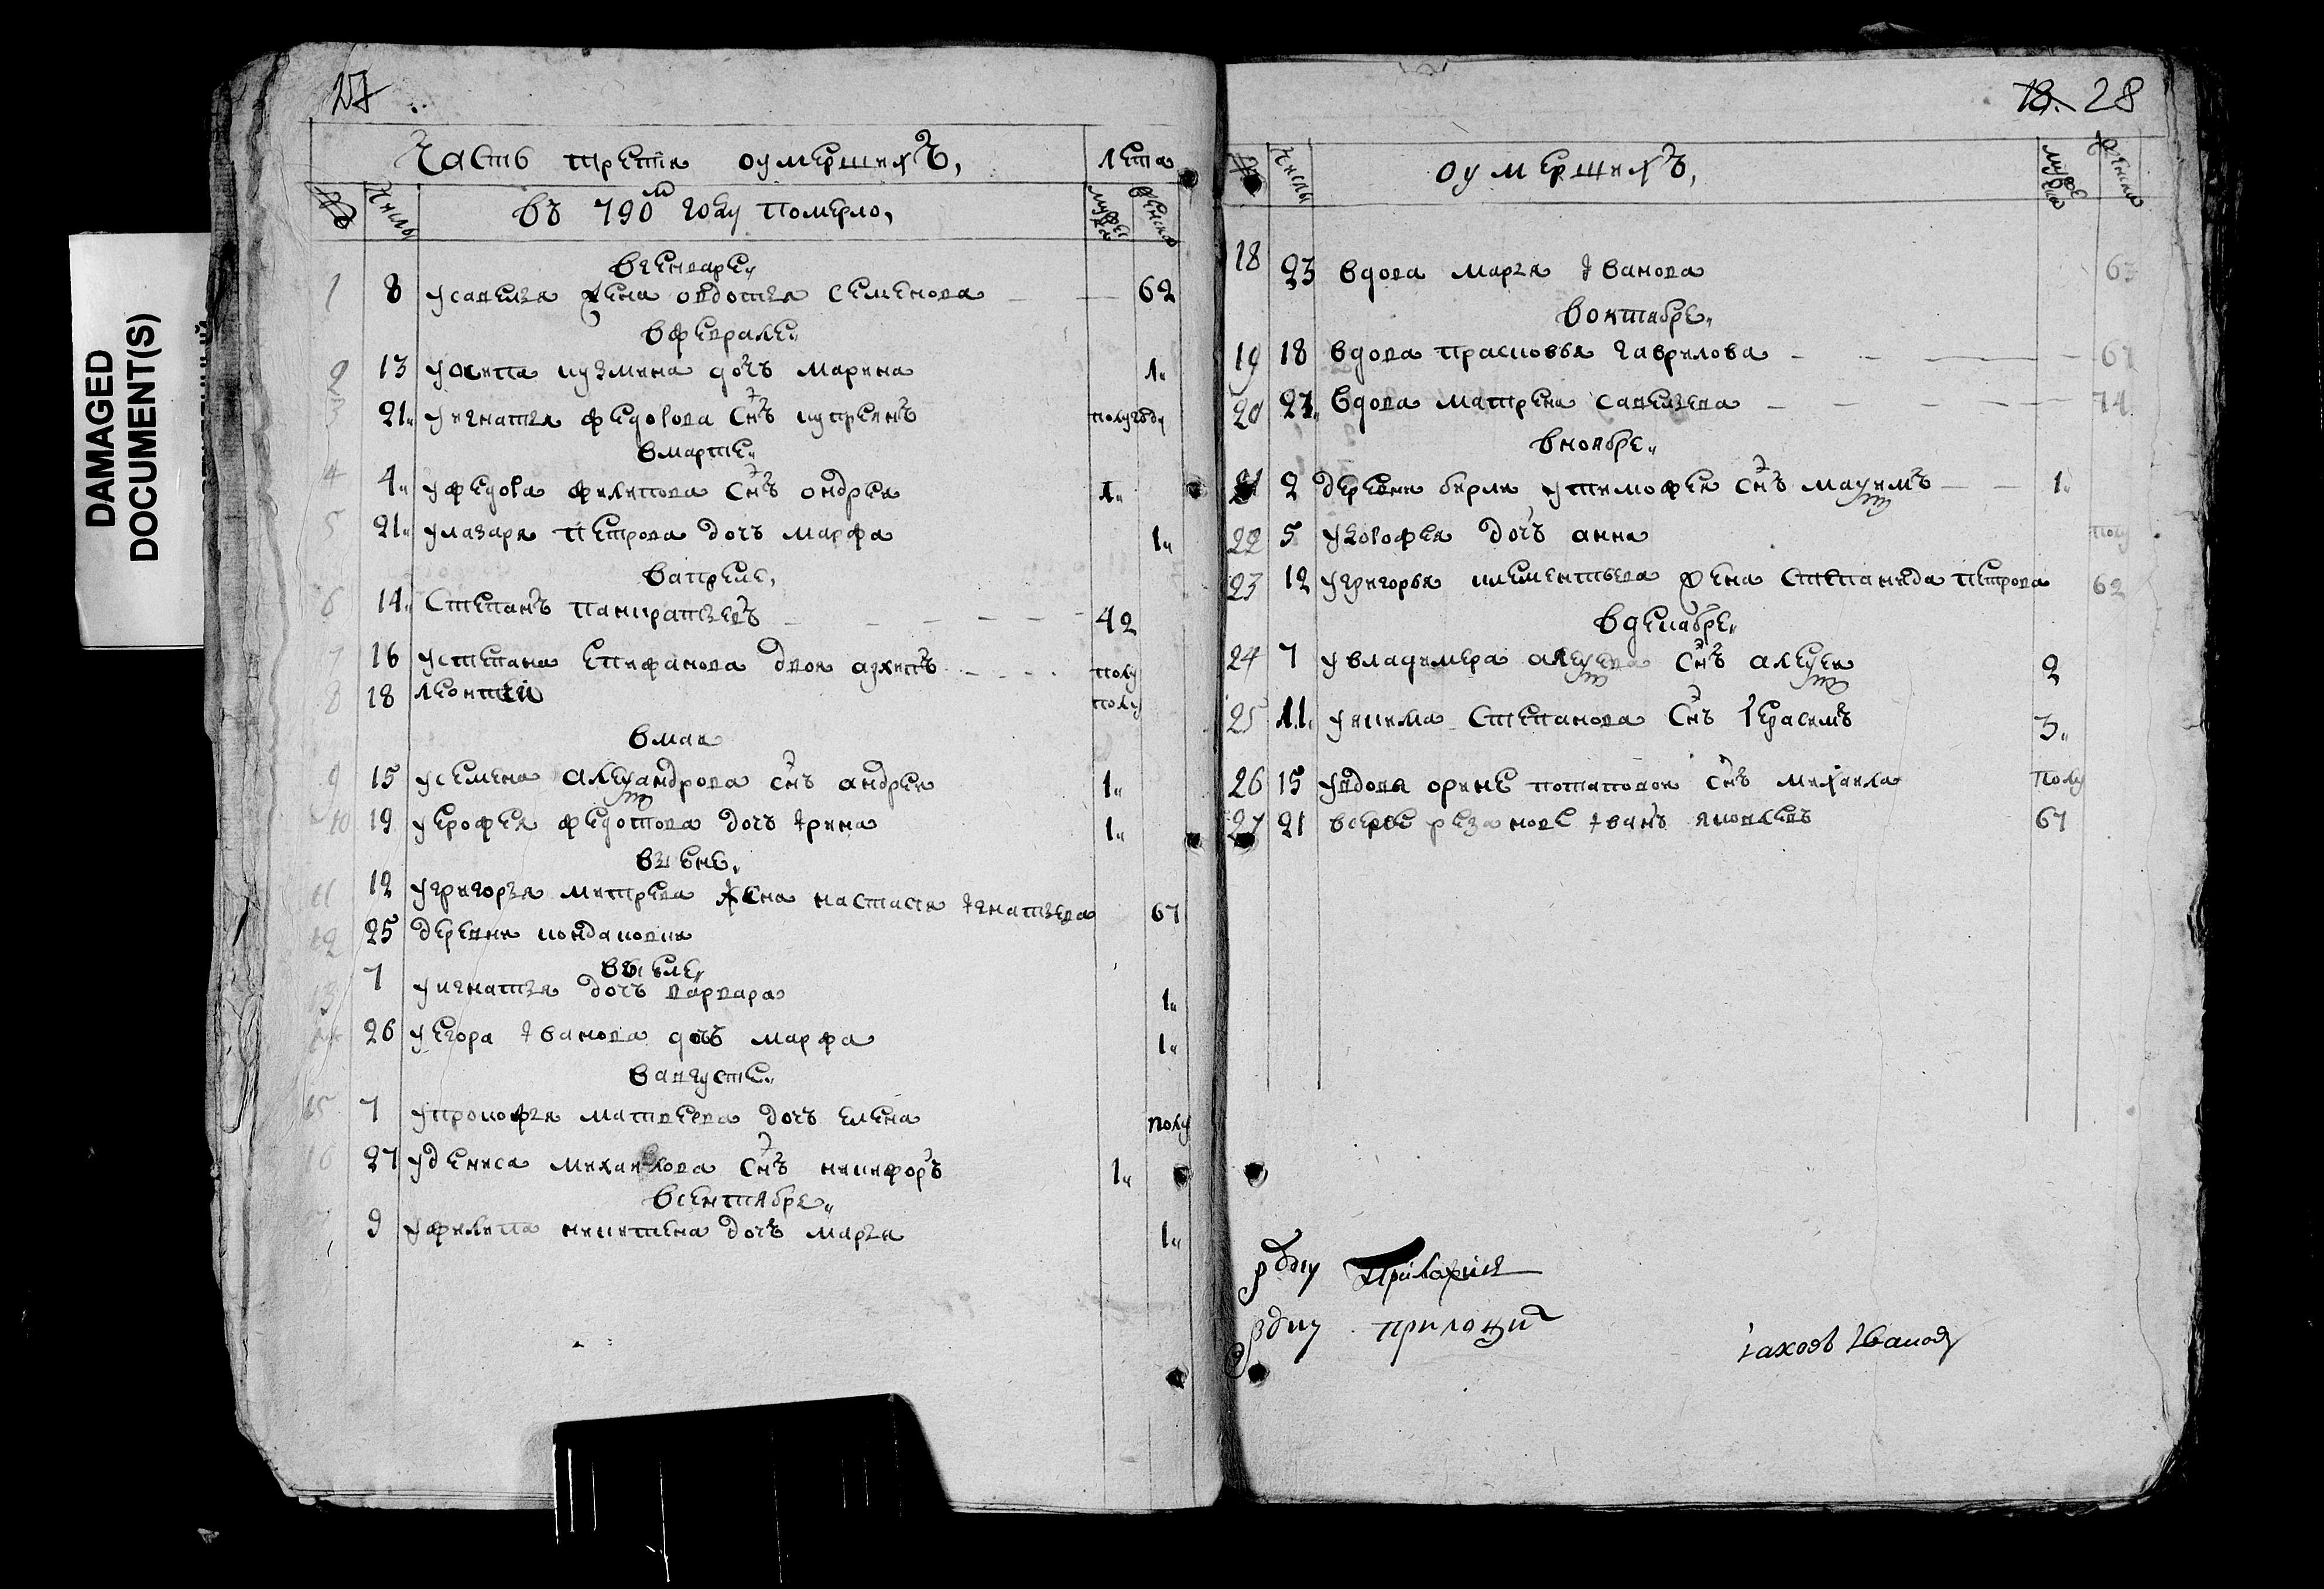 DAMAGED
DOCUMENT(S)
27
Часть третия оумершихъ,
лета
№
числы
въ 790м году померло,
мужеска
женска
в генваре
1 8 у савелья жена овдотья семенова 62
в феврале
2 13 у осипа кузмина дочь марина 1
3 21 у игнатья федолова снъ куприянъ полугоду
в марте
4 4 у федола филипова снъ ондрея 1
5 21 у лазаря петрова дочь марфа 1
в апреле,
6 14 степанъ панкратьевъ 42
7 16 у степана епифанова двои архипъ полу
8 18 леонтей полу
в маи
9 15 у семена александрова снъ андреи 1
10 19 у ерофея федотова дочь ирина 1
в июне
11 12 у григорья митрева жена настасия игнатьева 67
12 25 деревня кондаковки
в июле
13 7 у игнатья дочь варвара 1
14 26 у егора иванова дочь марфа 1
в августе
15 7 у прокофья матвеева дочь елена полу
16 27 у дениса михаилова снъ никифоръ 1
в сентябре
17 9 у филипа никитина дочь марья 1
13. 28
№
числы
оумершихъ,
мужеска
женска
18 23 вдова марья иванова 63
в октябре
19 18 вдова прасковья гаврилова 67
20 27 вдова матрена савельева 74
в ноябре
21 2 деревни бирли у тимофея снъ максимъ 1
22 5 у дочь анна полу
23 12 у григорья клементьева жена степанида петрова 62
в декабре
24 7 у владимера алексеева снъ алексеи 2
25 11 у якима степанова снъ герасимъ 3
26 15 у вдовы орине потаповои снъ михаила полу
27 21 в селе резанове иванъ яковлевъ 67
приложил
Иаковъ Ивановъ